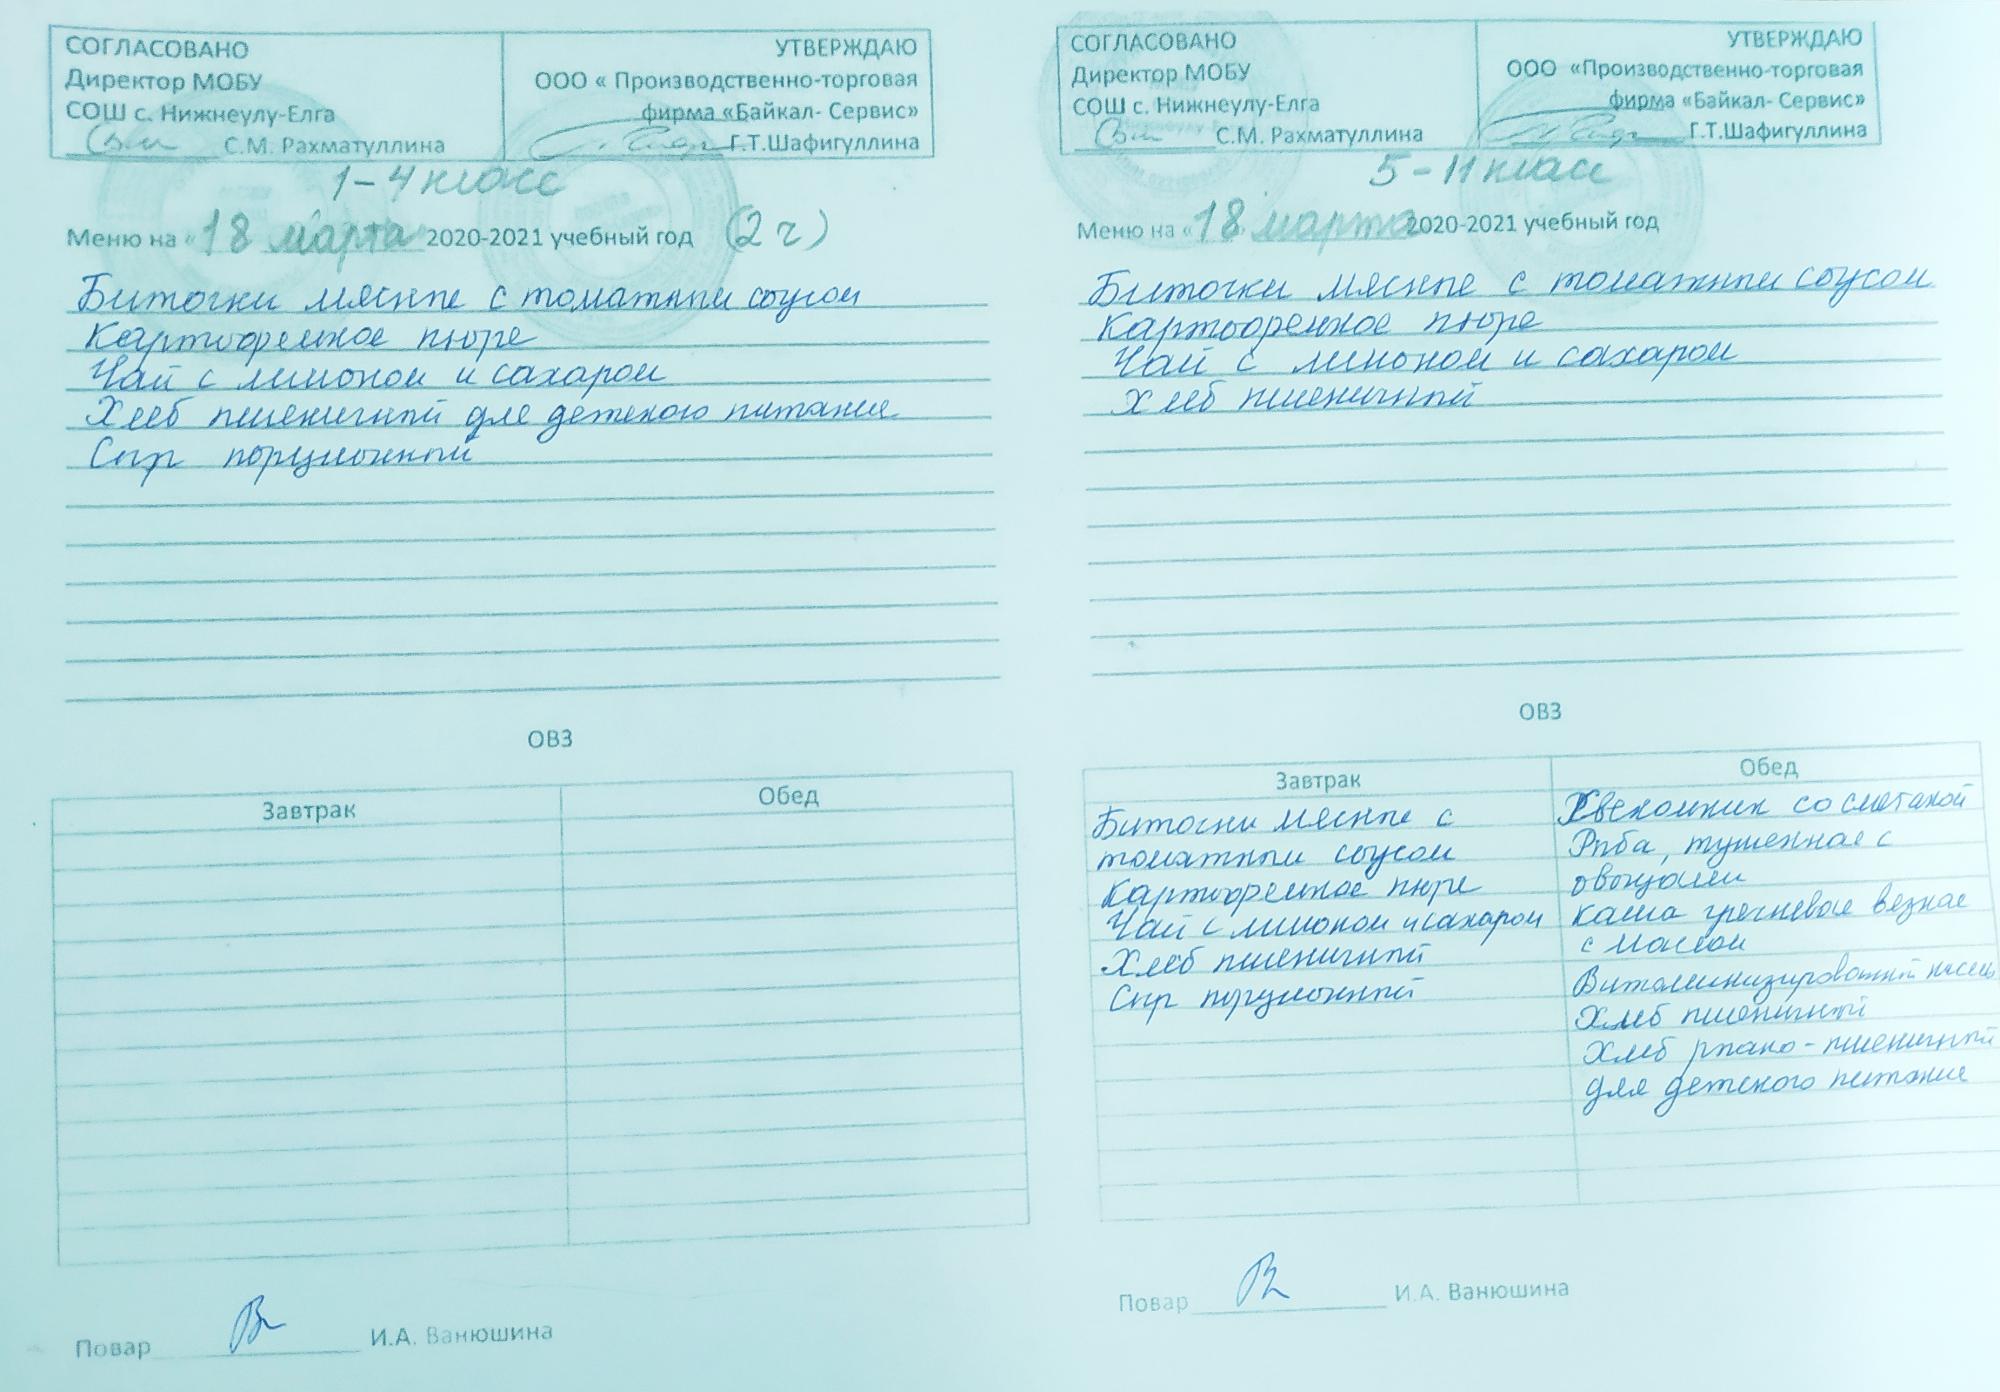 СОГЛАСОВАНО
Директор МОБУ
СОШ с. Нижнеулу-Елга
С.М. Рахматуллина
УТВЕРЖДАЮ
ООО « Производственно-торговая
фирма «Байкал- Сервис»
Г.Т.Шафигуллина
1-4 класс
Меню на «18 марта 2020-2021 учебный год (2 ч)
Биточки мясные с томатным соусом
Картофельное пюре
Чай с лимоном и сахаром
Хлеб пшеничный для детского питания
Сыр порционный
ОВЗ
Завтрак
Обед
Повар
И.А. Ванюшина
СОГЛАСОВАНО
Директор МОБУ
СОШ с. Нижнеулу-Елга
С.М. Рахматуллина
УТВЕРЖДАЮ
ООО «Производственно-торговая
фирма «Байкал- Сервис»
Г.Т.Шафигуллина
5-11 класс
Меню на «18 марта 2020-2021 учебный год
Биточки мясные с томатным соусом
Картофельное пюре
Чай с лимоном и сахаром
Хлеб пшеничный
ОВЗ
Завтрак
Биточки мясные с
томатным соусом
Картофельное пюре
Чай с лимоном и сахаром
Хлеб пшеничный
Сыр порционный
Обед
Свекольник со сметаной
Рыба, тушенная с
овощами
каша гречневая вязкая
с маслом
Витаминизированный кисель
Хлеб пшеничный
Хлеб ржано-пшеничный
для детского питания
Повар
И.А. Ванюшина